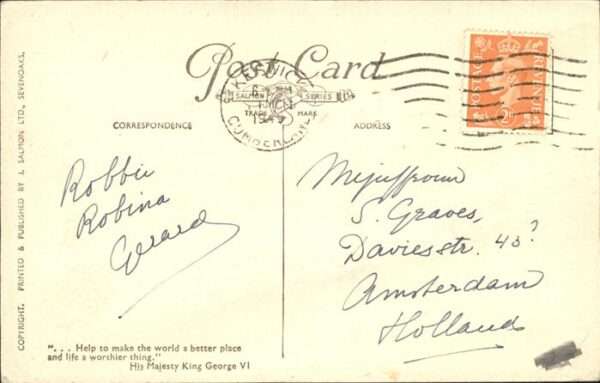 Post Card
KESWICK
CUMBERLAND
SALMON SERIES
TRADE MARK
REVENUE
CORRESPONDENCE
ADDRESS
Robbie
Robina
Gerard
Mejuffrouw
S. Graves,
Daviesstr. 43?
Amsterdam
Holland
". . . Help to make the world a better place
and life a worthier thing."
His Majesty King George VI
COPYRIGHT. PRINTED & PUBLISHED BY J. SALMON LTD., SEVENOAKS.